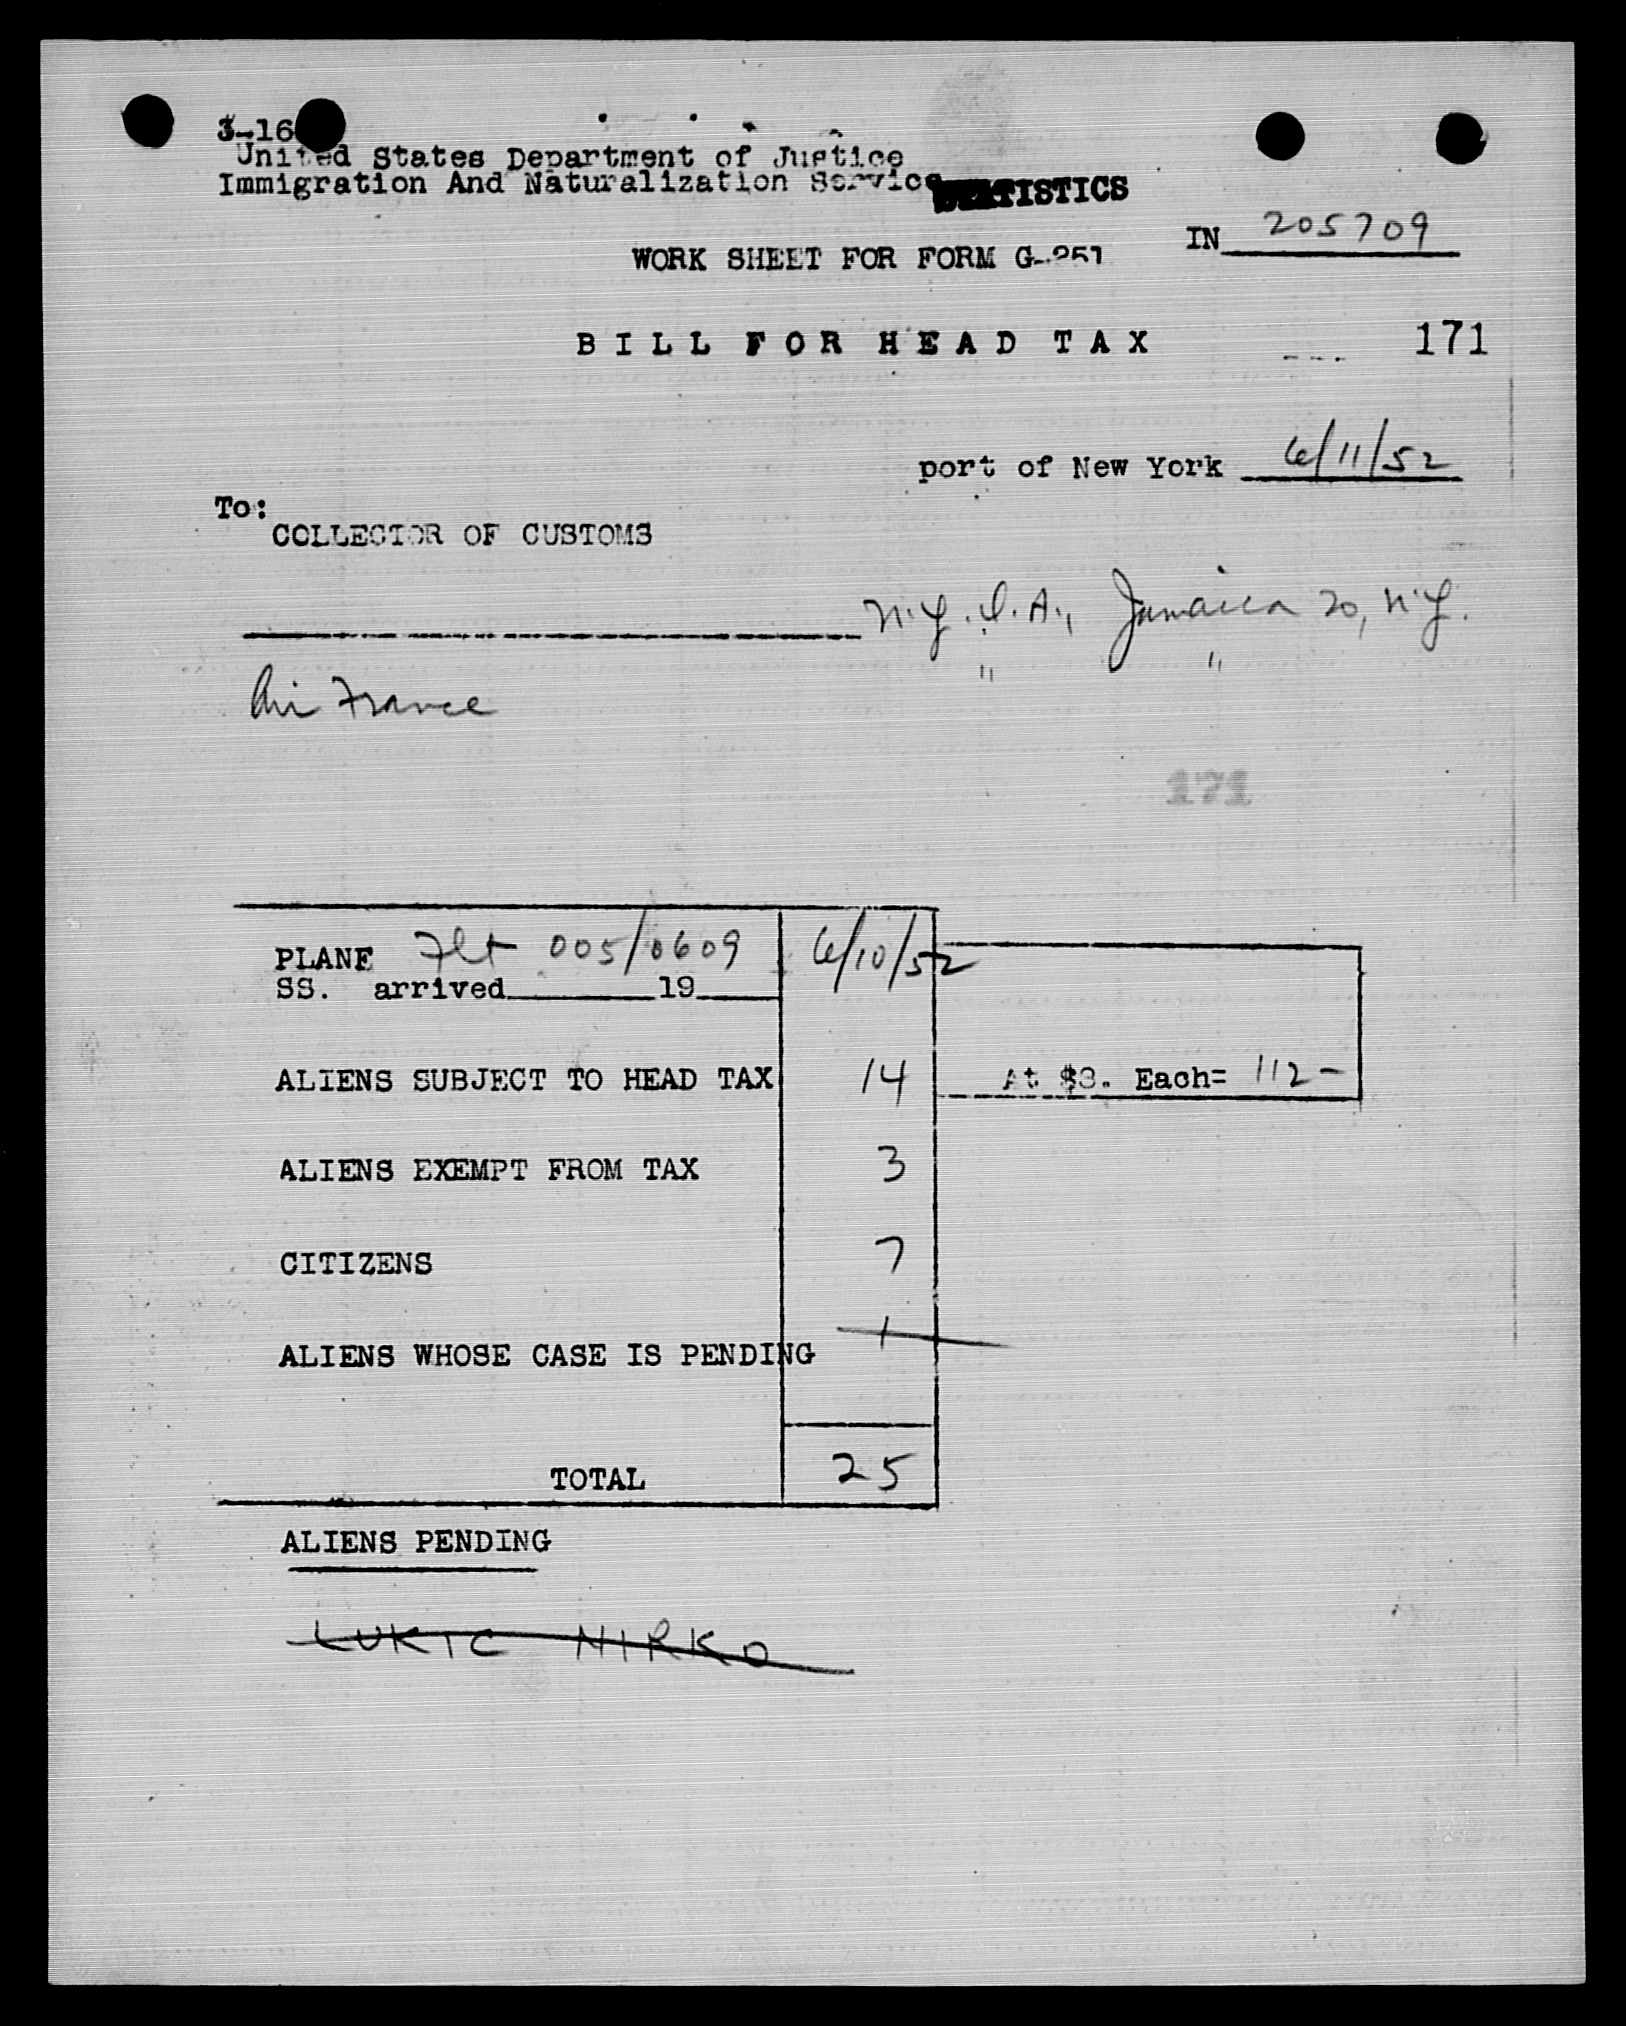 3-16
United States Department of Justice
Immigration And Naturalization Service
STATISTICS
IN 205709
WORK SHEET FOR FORM G-251
BILL FOR HEAD TAX
171
port of New York 6/11/52
To:
COLLECTOR OF CUSTOMS
N.Y.I.A., Jamaica 20, N.Y.
" "
Air France
171
PLANE Flt 005/0609 6/10/52
SS. arrived 19
ALIENS SUBJECT TO HEAD TAX 14 At $8. Each= 112-
ALIENS EXEMPT FROM TAX 3
CITIZENS 7
ALIENS WHOSE CASE IS PENDING 1
TOTAL 25
ALIENS PENDING
LUKIC NIRKO